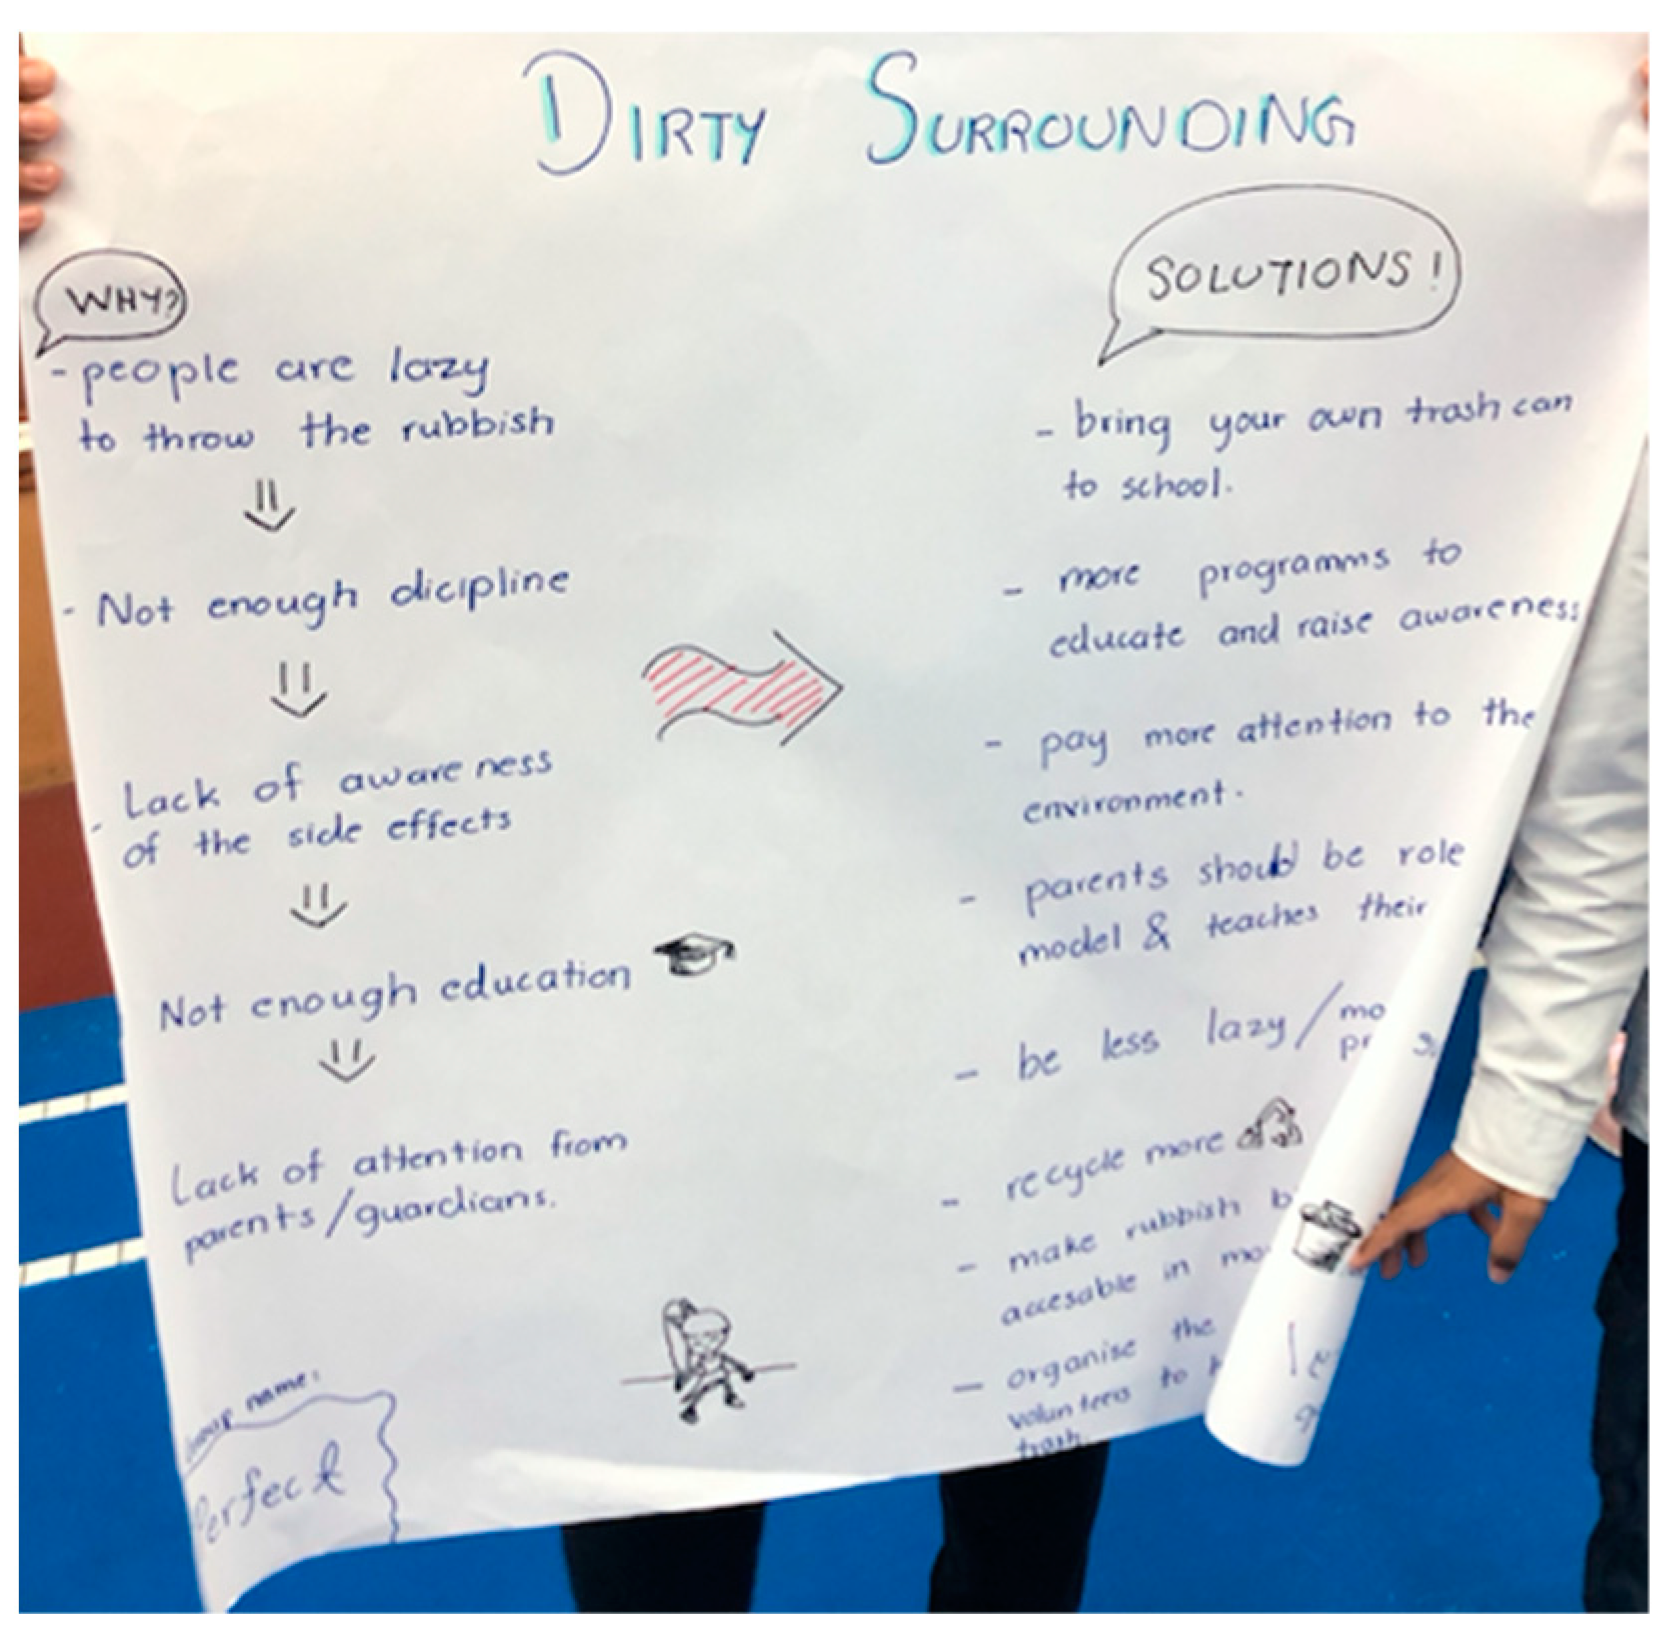 DIRTY SURROUNDING
WHY?
- people are lazy
to throw the rubbish
- Not enough dicipline
- Lack of awareness
of the side effects
Not enough education
Lack of attention from
parents/guardians.
Group name:
Perfect
SOLUTIONS!
- bring your own trash can
to school.
- more programms to
educate and raise awareness
- pay more attention to the
environment.
- parents should be role
model & teaches their
- be less lazy/
- recycle more
- make rubbish
accesable in
- organise the
volunteers to
trash